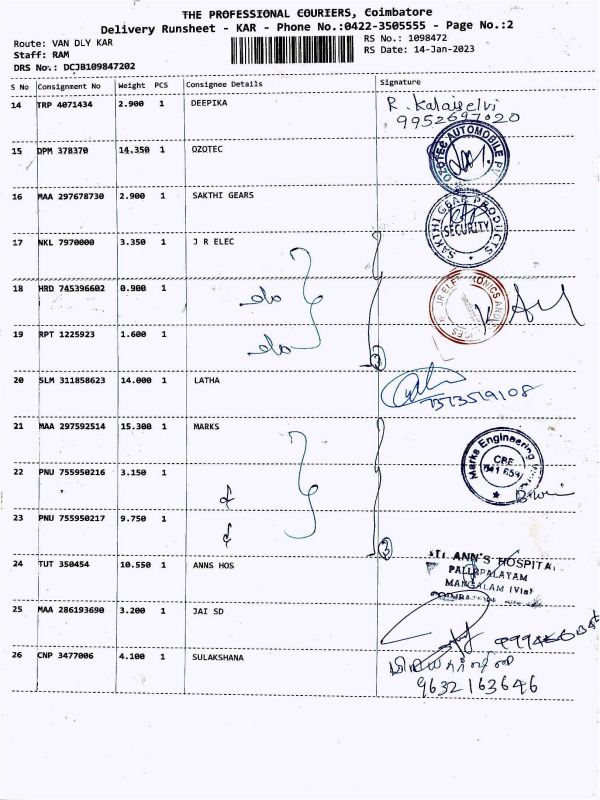 THE PROFESSIONAL COURIERS, Coimbatore
Delivery Runsheet - KAR - Phone No.:0422-3505555 - Page No.:2
Route: VAN DLY KAR
RS No.: 1098472
Staff: RAM
RS Date: 14-Jan-2023
DRS No.: DCJB109847202
S No Consignment No Weight PCS Consignee Details Signature
14 TRP 4071434 2.900 1 DEEPIKA R. Kalaiselvi
9952697020
15 DPM 378370 14.350 1 OZOTEC OZOTEC AUTOMOBILE
16 MAA 297678730 2.900 1 SAKTHI GEARS SAKTHI GEAR PRODUCTS
SECURITY
17 NKL 7970000 3.350 1 J R ELEC
18 HRD 745396602 0.900 1 do
19 RPT 1225923 1.600 1 do
3
20 SLM 311858623 14.000 1 LATHA
21 MAA 297592514 15.300 1 MARKS Marks Engineering
CBE
22 PNU 755950216 3.150 1
23 PNU 755950217 9.750 1
3
24 TUT 350454 10.550 1 ANNS HOS ST. ANN'S HOSPITAL
PALLAPALAYAM
MANGALAM (Via)
25 MAA 286193690 3.200 1 JAI SD
26 CNP 3477006 4.100 1 SULAKSHANA
9632163646